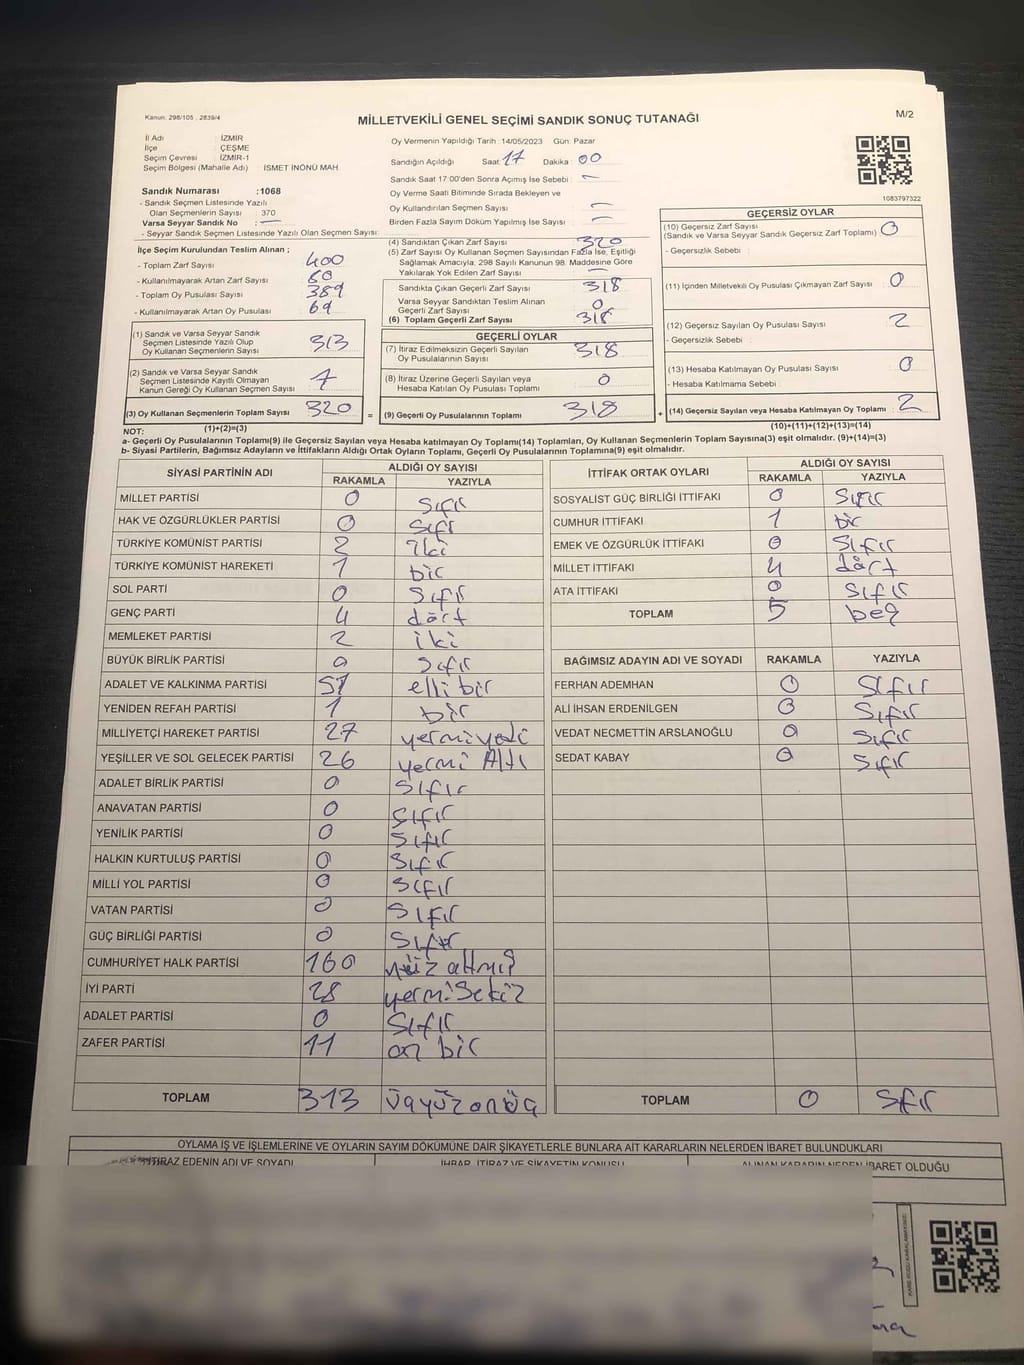 Kanun: 298/105 , 2839/4
MİLLETVEKİLİ GENEL SEÇİMİ SANDIK SONUÇ TUTANAĞI
M/2
İl Adı : İZMİR
İlçe : ÇEŞME
Seçim Çevresi : İZMİR-1
Seçim Bölgesi (Mahalle Adı) İSMET İNÖNÜ MAH
Sandık Numarası : 1068
- Sandık Seçmen Listesinde Yazılı
Olan Seçmenlerin Sayısı : 370
Varsa Seyyar Sandık No :
- Seyyar Sandık Seçmen Listesinde Yazılı Olan Seçmen Sayısı:
Oy Vermenin Yapıldığı Tarih : 14/05/2023 Gün: Pazar
Sandığın Açıldığı Saat: 17 Dakika : 00
Sandık Saat 17:00'den Sonra Açılmış İse Sebebi : -
Oy Verme Saati Bitiminde Sırada Bekleyen ve
Oy Kullandırılan Seçmen Sayısı : -
Birden Fazla Sayım Döküm Yapılmış İse Sayısı : -
1083797322
İlçe Seçim Kurulundan Teslim Alınan ;
- Toplam Zarf Sayısı : 400
- Kullanılmayarak Artan Zarf Sayısı : 80
- Toplam Oy Pusulası Sayısı : 389
- Kullanılmayarak Artan Oy Pusulası : 69
(1) Sandık ve Varsa Seyyar Sandık
Seçmen Listesinde Yazılı Olup
Oy Kullanan Seçmenlerin Sayısı : 313
(2) Sandık ve Varsa Seyyar Sandık
Seçmen Listesinde Kayıtlı Olmayan
Kanun Gereği Oy Kullanan Seçmen Sayısı : 7
(3) Oy Kullanan Seçmenlerin Toplam Sayısı 320 =
(1)+(2)=(3)
(4) Sandıktan Çıkan Zarf Sayısı : 320
(5) Zarf Sayısı Oy Kullanan Seçmen Sayısından Fazla İse, Eşitliği
Sağlamak Amacıyla, 298 Sayılı Kanunun 98. Maddesine Göre
Yakılarak Yok Edilen Zarf Sayısı : -
Sandıkta Çıkan Geçerli Zarf Sayısı : 318
Varsa Seyyar Sandıktan Teslim Alınan
Geçerli Zarf Sayısı : 0
(6) Toplam Geçerli Zarf Sayısı : 318
GEÇERLİ OYLAR
(7) İtiraz Edilmeksizin Geçerli Sayılan
Oy Pusulalarının Sayısı : 318
(8) İtiraz Üzerine Geçerli Sayılan veya
Hesaba Katılan Oy Pusulaları Toplamı : 0
(9) Geçerli Oy Pusulalarının Toplamı : 318 +
GEÇERSİZ OYLAR
(10) Geçersiz Zarf Sayısı : 0
(Sandık ve Varsa Seyyar Sandık Geçersiz Zarf Toplamı)
- Geçersizlik Sebebi :
(11) İçinden Milletvekili Oy Pusulası Çıkmayan Zarf Sayısı : 0
(12) Geçersiz Sayılan Oy Pusulası Sayısı : 2
- Geçersizlik Sebebi :
(13) Hesaba Katılmayan Oy Pusulası Sayısı : 0
- Hesaba Katılmama Sebebi :
(14) Geçersiz Sayılan veya Hesaba Katılmayan Oy Toplamı : 2
(10)+(11)+(12)+(13)=(14)
NOT:
a- Geçerli Oy Pusulalarının Toplamı(9) ile Geçersiz Sayılan veya Hesaba katılmayan Oy Toplamı(14) Toplamları, Oy Kullanan Seçmenlerin Toplam Sayısına(3) eşit olmalıdır. (9)+(14)=(3)
b- Siyasi Partilerin, Bağımsız Adayların ve İttifakların Aldığı Ortak Oyların Toplamı, Geçerli Oy Pusulalarının Toplamına(9) eşit olmalıdır.
SİYASİ PARTİNİN ADI
ALDIĞI OY SAYISI
RAKAMLA YAZIYLA
MİLLET PARTİSİ 0 Sıfır
HAK VE ÖZGÜRLÜKLER PARTİSİ 0 Sıfır
TÜRKİYE KOMÜNİST PARTİSİ 2 iki
TÜRKİYE KOMÜNİST HAREKETİ 1 bir
SOL PARTİ 0 Sıfır
GENÇ PARTİ 4 dört
MEMLEKET PARTİSİ 2 iki
BÜYÜK BİRLİK PARTİSİ 0 Sıfır
ADALET VE KALKINMA PARTİSİ 51 elli bir
YENİDEN REFAH PARTİSİ 1 bir
MİLLİYETÇİ HAREKET PARTİSİ 27 yermiyedi
YEŞİLLER VE SOL GELECEK PARTİSİ 26 yermi Altı
ADALET BİRLİK PARTİSİ 0 Sıfır
ANAVATAN PARTİSİ 0 Sıfır
YENİLİK PARTİSİ 0 Sıfır
HALKIN KURTULUŞ PARTİSİ 0 Sıfır
MİLLİ YOL PARTİSİ 0 Sıfır
VATAN PARTİSİ 0 Sıfır
GÜÇ BİRLİĞİ PARTİSİ 0 Sıfır
CUMHURİYET HALK PARTİSİ 160 yüz altmış
İYİ PARTİ 28 yermiSekiz
ADALET PARTİSİ 0 Sıfır
ZAFER PARTİSİ 11 on bir
TOPLAM 313 üçyüzonüç
İTTİFAK ORTAK OYLARI
ALDIĞI OY SAYISI
RAKAMLA YAZIYLA
SOSYALİST GÜÇ BİRLİĞİ İTTİFAKI 0 Sıfır
CUMHUR İTTİFAKI 1 bir
EMEK VE ÖZGÜRLÜK İTTİFAKI 0 Sıfır
MİLLET İTTİFAKI 4 dört
ATA İTTİFAKI 0 Sıfır
TOPLAM 5 beş
BAĞIMSIZ ADAYIN ADI VE SOYADI RAKAMLA YAZIYLA
FERHAN ADEMHAN 0 Sıfır
ALİ İHSAN ERDENİLGEN 0 Sıfır
VEDAT NECMETTİN ARSLANOĞLU 0 Sıfır
SEDAT KABAY 0 Sıfır
TOPLAM 0 Sıfır
OYLAMA İŞ VE İŞLEMLERİNE VE OYLARIN SAYIM DÖKÜMÜNE DAİR ŞİKAYETLERLE BUNLARA AİT KARARLARIN NELERDEN İBARET BULUNDUKLARI
İTİRAZ EDENİN ADI VE SOYADI İHBAR, İTİRAZ VE ŞİKAYETİN KONUSU ALINAN KARARIN NEDEN İBARET OLDUĞU
KARE KODU KARALAMAYINIZ!